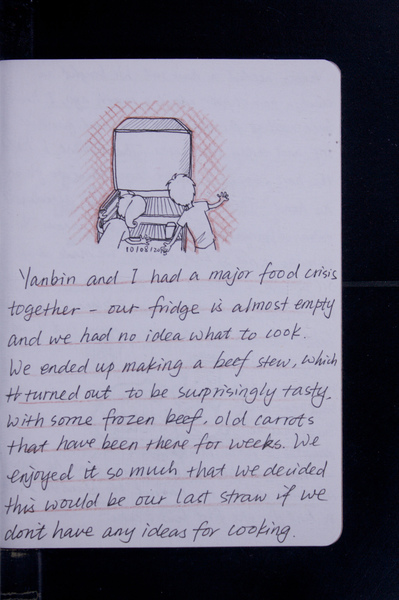 10/08/20
Yanbin and I had a major food crisis
together - our fridge is almost empty
and we had no idea what to cook.
We ended up making a beef stew, which
turned out to be surprisingly tasty,
with some frozen beef, old carrots
that have been there for weeks. We
enjoyed it so much that we decided
this would be our last straw if we
don't have any ideas for cooking.